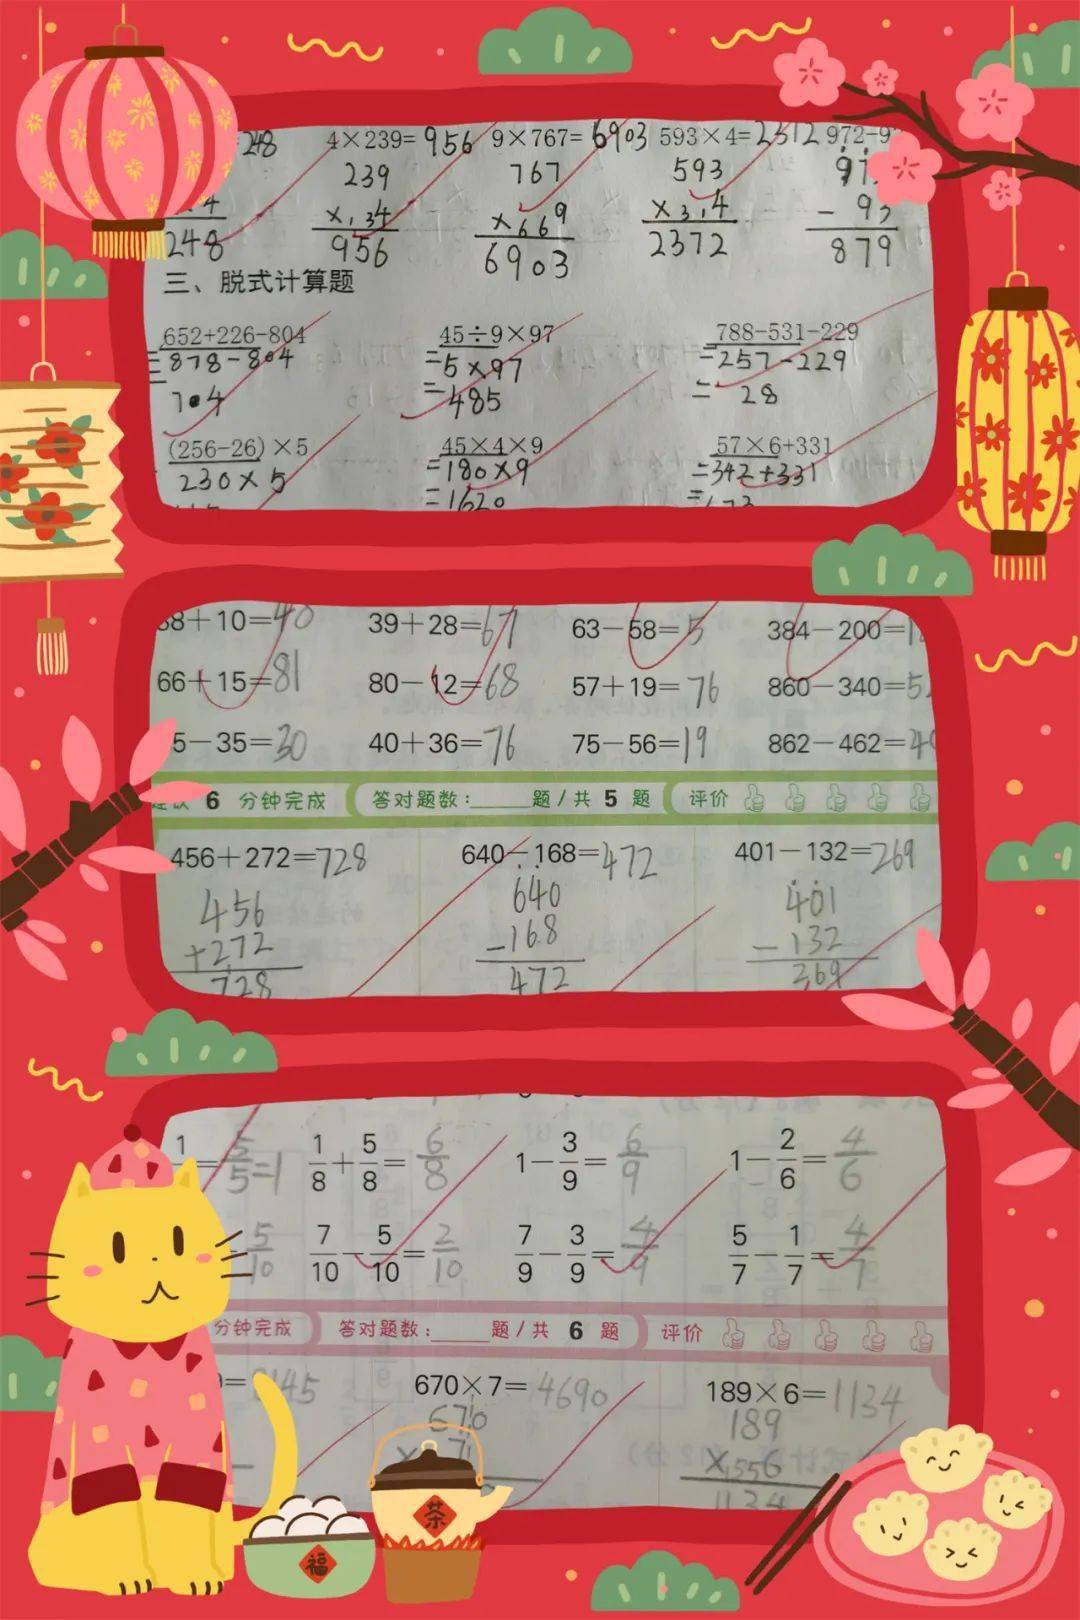 248 4×239=956 9×767=6903 593×4=2312 972-9
239 767 593
4 ×34 ×669 ×3,4 - 93
248 956 6903 2372 879
三、脱式计算题
652+226-804 45÷9×97 788-531-229
=878-804 =5×97 =257-229
=704 =485 =28
(256-26)×5 45×4×9 57×6+331
230×5 =180×9 =342+331
=1620
8+10=40 39+28=67 63-58=5 384-200=1
66+15=81 80-12=68 57+19=76 860-340=52
5-35=30 40+36=76 75-56=19 862-462=40
6 分钟完成 答对题数:____题/共 5 题 评价
456+272=728 640-168=472 401-132=269
456 640 401
+272 -168 -132
728 472 369
1=5/5=1 1/8+5/8=6/8 1-3/9=6/9 1-2/6=4/6
5/10 7/10-5/10=2/10 7/9-3/9=4/9 5/7-1/7=4/7
分钟完成 答对题数:____题/共 6 题 评价
=145 670×7=4690 189×6=1134
670 189
×7 ×556
1134
茶
福